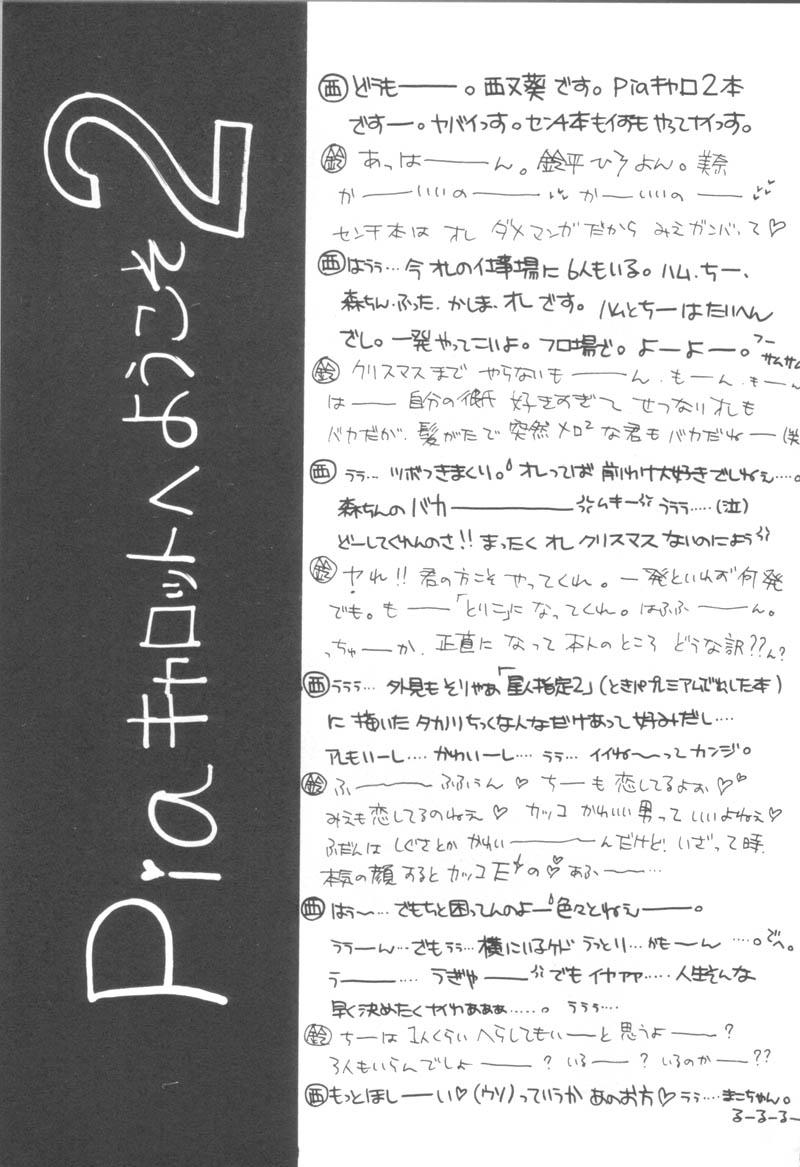 Piaキャロットへようこそ2
西 どうも――。西又葵です。Piaキャロ2本
ですー。ヤバイっす。センチ本もイずもやってナイっす。
鈴 あっは――ん。鈴平ひろよん。美奈
か――いいの――か―いいの―
センチ本は オレ ダメマンガだから みえガンバって♡
西 はうぅ…今オレの仕事場に6人もいる。ハム、ちー、
森ちん、ふった、かしま、オレです。ハムとちーはたいへん
ざし。一発やってこいよ。フロ場で。よーよー。フー
サムサム
鈴 クリスマスまで やらないも――ん、もーん、もーん
は――自分の彼氏 好きすぎて せつなりオレも
バカだが、髪がたで突然メロ2な君もバカだねー(笑
西 うぅ…ツボつきまくり。オレってば 前わけ大好きでしねぇ…。
森ちんのバカ――――ムキーうぅぅ……(泣)
どーしてくれんのさ!! まったく オレ クリスマス ないのによう
鈴 ヤれ!! 君の方こそ やってくれ。一発といわず何発
でも。も――「とりこ」になってくれ。はふふ――ん。
っちゅーか、正直に なって 本人のところ どうな訳??ん?
西 うぅぅ…外見もそりゃあ「星人指定2」(ときパプレミアムでだした本)
に 描いた タカノリちっくな人なだけあって 好みだし…
アレもいーし…かわいーし…うぅ…イイね〜ってカンジ。
鈴 ふ――ふふぅん♡ ちーも 恋してるよぉ♡
みえも恋してるのねぇ♡ カッコ かわいい 男って いいよねぇ♡
ふだんは しぐさとか かわい――んだけど、いざって時、
本気の顔 するとカッコE の♡ あふ―…
西 はぅ〜…でもちと困ってんのよー色々とねぇ――。
うぅーん…でもうぅ…横にいるケド うっとり…かもーん ….。でへ。
う――…うぎゃ――でも イヤァァ……人生そんな
早く決めたくナイわぁぁぁ……。うぅぅ…
鈴 ちーは 1人くらい へらしてもいーと思うよ――?
3人もいらんでしょ――? いる――? いるのかー??
西 もっとほし――い♡(ウソ)っていうか あのお方♡うぅ…まこちゃん。
るーるーるー